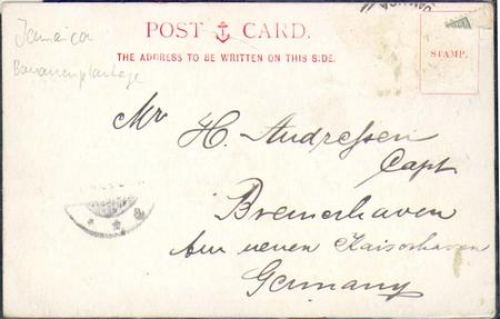 Jamaica
Bananenplantage
POST CARD.
THE ADDRESS TO BE WRITTEN ON THIS SIDE.
STAMP.
Mr H. Andreſsen
Capt
Bremerhaven
Am neuen Kaiserhaven
Germany